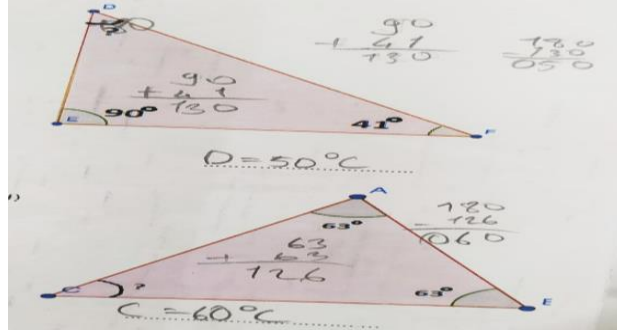 D
?
90
+ 41
130
180
- 130
050
90
+ 41
130
E 90° 41° F
D = 50°C
A
63°
180
- 126
060
63
+ 63
126
C ? 63° E
C = 60°C